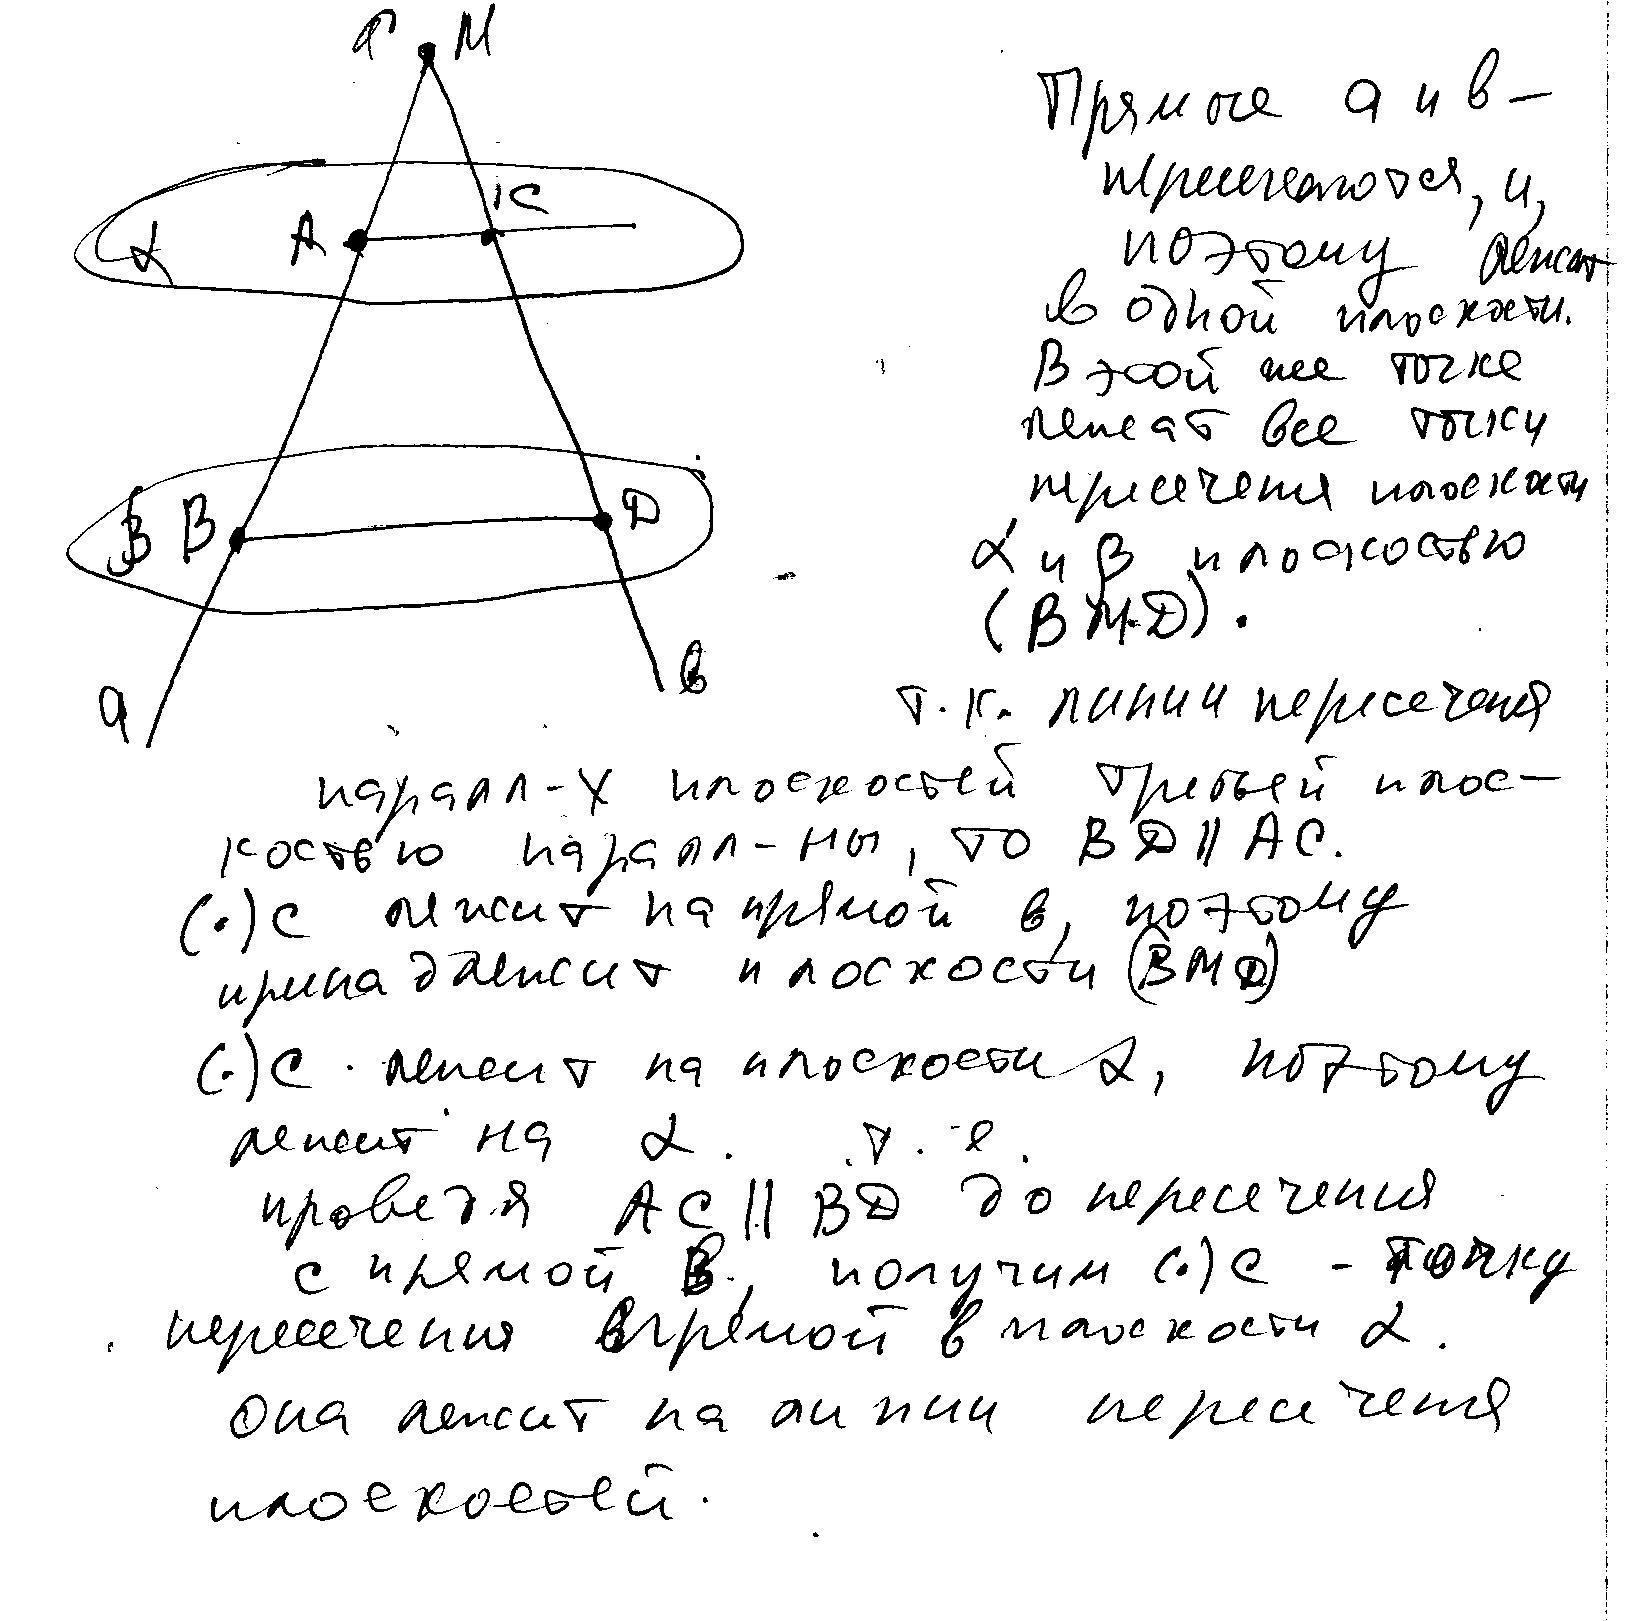 М
А
С
α
β
В
D
а
в
Прямые а и в –
пересекаются, и,
поэтому лежат
в одной плоскости.
В этой же точке
лежат все точки
пересечения плоскости
α и β плоскостью
(ВМD).
т.к. линии пересечения
паралл-х плоскостей третьей плос-
костью паралл-ны, то BD || АС.
(·)С лежит на прямой в, поэтому
принадлежит плоскости (ВМD)
(·)С лежит на плоскости α, поэтому
лежит на α. т.е.
проведя АС || BD до пересечения
с прямой в, получим (·)С - точку
пересечения прямой в плоскости α.
Она лежит на линии пересечения
плоскостей.